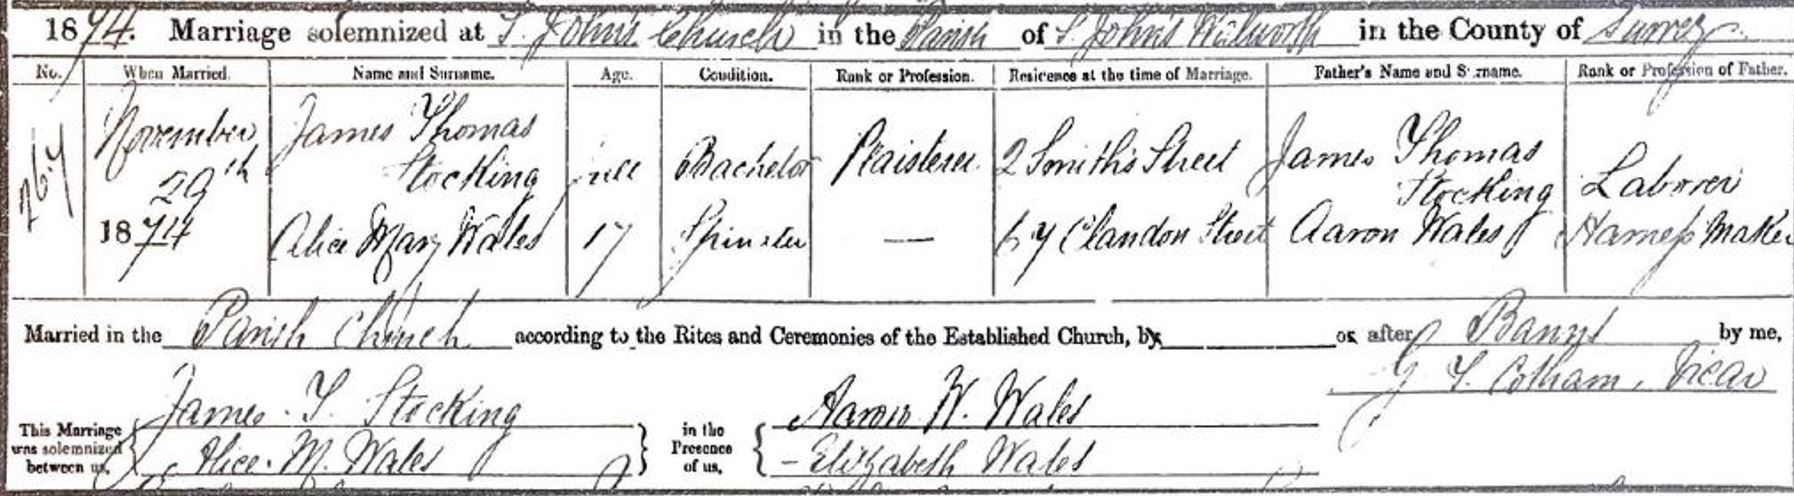 1874. Marriage solemnized at S. John's Church in the Parish of S. John's Walworth in the County of Surrey
No. When Married. Name and Surname. Age. Condition. Rank or Profession. Residence at the time of Marriage. Father's Name and Surname. Rank or Profession of Father.
267 November 29th 1874 James Thomas Stocking full Bachelor Plaisterer 2 Smith's Street James Thomas Stocking Laborer
Alice Mary Wales 17 Spinster — 67 Clandon Street Aaron Wales Harness Maker
Married in the Parish Church according to the Rites and Ceremonies of the Established Church, by or after Banns by me,
G T Cotham, Vicar
This Marriage was solemnized between us, James. T. Stocking in the Presence of us, Aaron W. Wales
Alice. M. Wales Elizabeth Wales